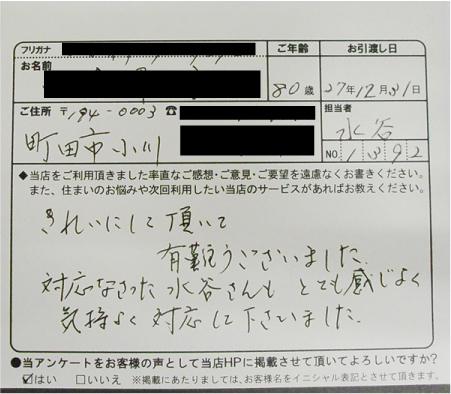 フリガナ
お名前
ご年齢
80歳
お引渡し日
27年12月31日
ご住所 〒194-0003 ☎
町田市小川
担当者
水谷
NO. 1392
◆当店をご利用頂きました率直なご感想・ご意見・ご要望を遠慮なくお書きください。
また、住まいのお悩みや次回利用したい当店のサービスがあればお教えください。
きれいにして頂いて
有難うございました。
対応なさった水谷さんもとても感じよく
気持よく対応して下さいました。
●当アンケートをお客様の声として当店HPに掲載させて頂いてよろしいですか?
☑はい □いいえ ※掲載にあたりましては、お客様名をイニシャル表記とさせて頂きます。